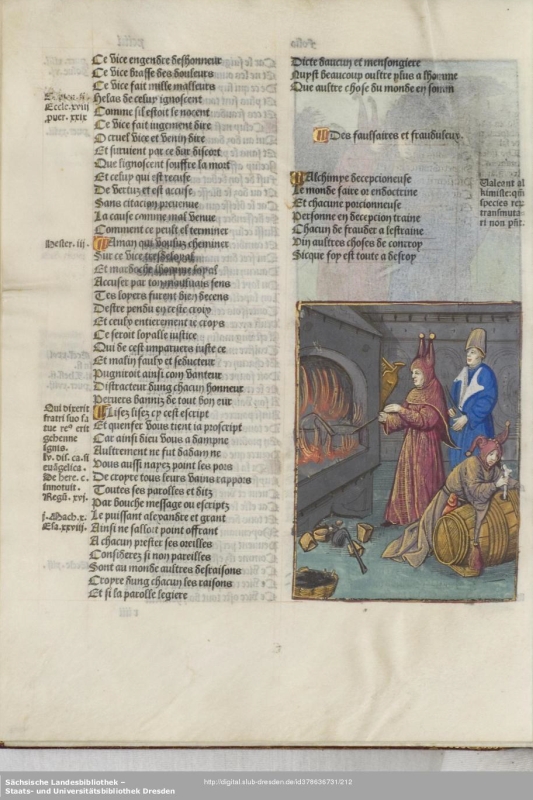 Ce vice engendre deshonneur
Ce vice brasse des douleurs
Ce vice fait mille malheurs
Helas de celuy ignoscent
Comme sil estoit le nocent
Ce vice fait iugement dire
O cruel vice et venin dire
Et suruient par ce dur discort
Que lignoscent souffre la mort
Et celuy qui est
De vertuz et est accuse
Sans citacion preuenue
La cause comme mal venue
Comment ce peult el terminer
Aman qui voulut cheminer
Sur ce vice tresdesloyal
Et mardochee lhomme loyal
Accuser par
Tes loyers furent bien decens
Destre pendu en ceste croix
Et ceulx entierement ie croys
Ce seroit loyalle iustice
Qui de cest impatuers iuste ce
Et malin faulx et seducteur
Pugniroit ainsi com vanteur
Distracteur dung chacun honneur
Peruers banniz de tout bon eur
Lisez lisez cy est escript
Et quenfer vous tient la proscript
Car ainsi dieu vous a dampne
Aultrement ne fut dadam ne
Vous aussi nayez point les pois
De croyre tous leurs vains rappors
Toutes ses parolles et ditz
Par bouche message ou escriptz
Le puissant alexandre et grant
Ainsi ne failloit point offrant
A chacun prester ses oreilles
Considerez si non pareilles
Sont au monde aultres desraisons
Croyre dung chacun les raisons
Et si la parolle legiere
Eccle. xviii
puer. xxix
Hester. iii.
Qui dixerit
fratri suo fa
tue reus erit
gehenne
ignis.
lv. dis. ca. si
euãgelica.
De here. c.
innotuit.
Regũ. xvj.
j. Mach. x.
Esa. xxviij.
Folio
Dicte daucun et mensongiere
Nuyst beaucoup oultre plus a lhomme
Que aultre chose du monde en somm
Des faulsaires et frauduleux.
Alchimye decepcioneuse
Le monde faire or endoctrine
Et chacune porcionneuse
Personne en decepcion traine
Chacun de frauder a lestraine
Vin aultres choses de conuoy
Sicque foy est toute a desroy
Valeant al
kimiste: qm̃
species rex
transmuta
ri non pñt.
Sächsische Landesbibliothek –
Staats- und Universitätsbibliothek Dresden
http://digital.slub-dresden.de/id378636731/212